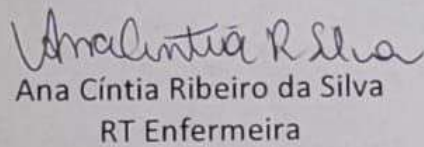 Ana Cintia R Silva
Ana Cíntia Ribeiro da Silva
RT Enfermeira